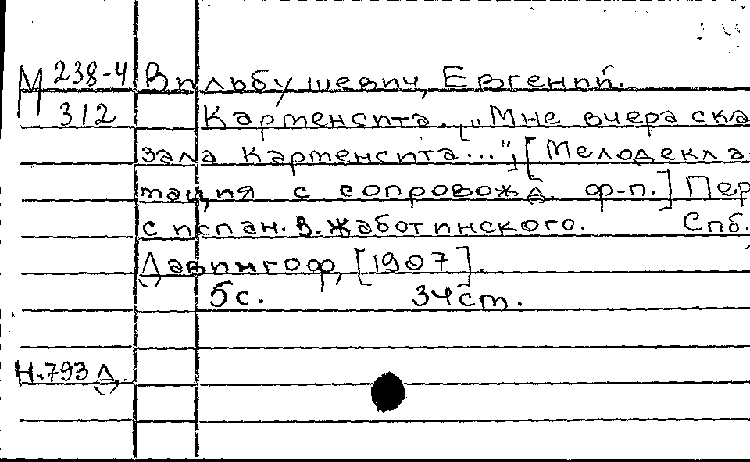 М 238-4 Вильбушевич, Евгений.
312 Карменсита. „Мне вчера ска
зала Карменсита...", [Мелодекла
мация с сопровожд. ф-п.] Пер.
с испан. В. Жаботинского. Спб.
Давингоф, [1907].
5с. 34ст.
Н.793 Д